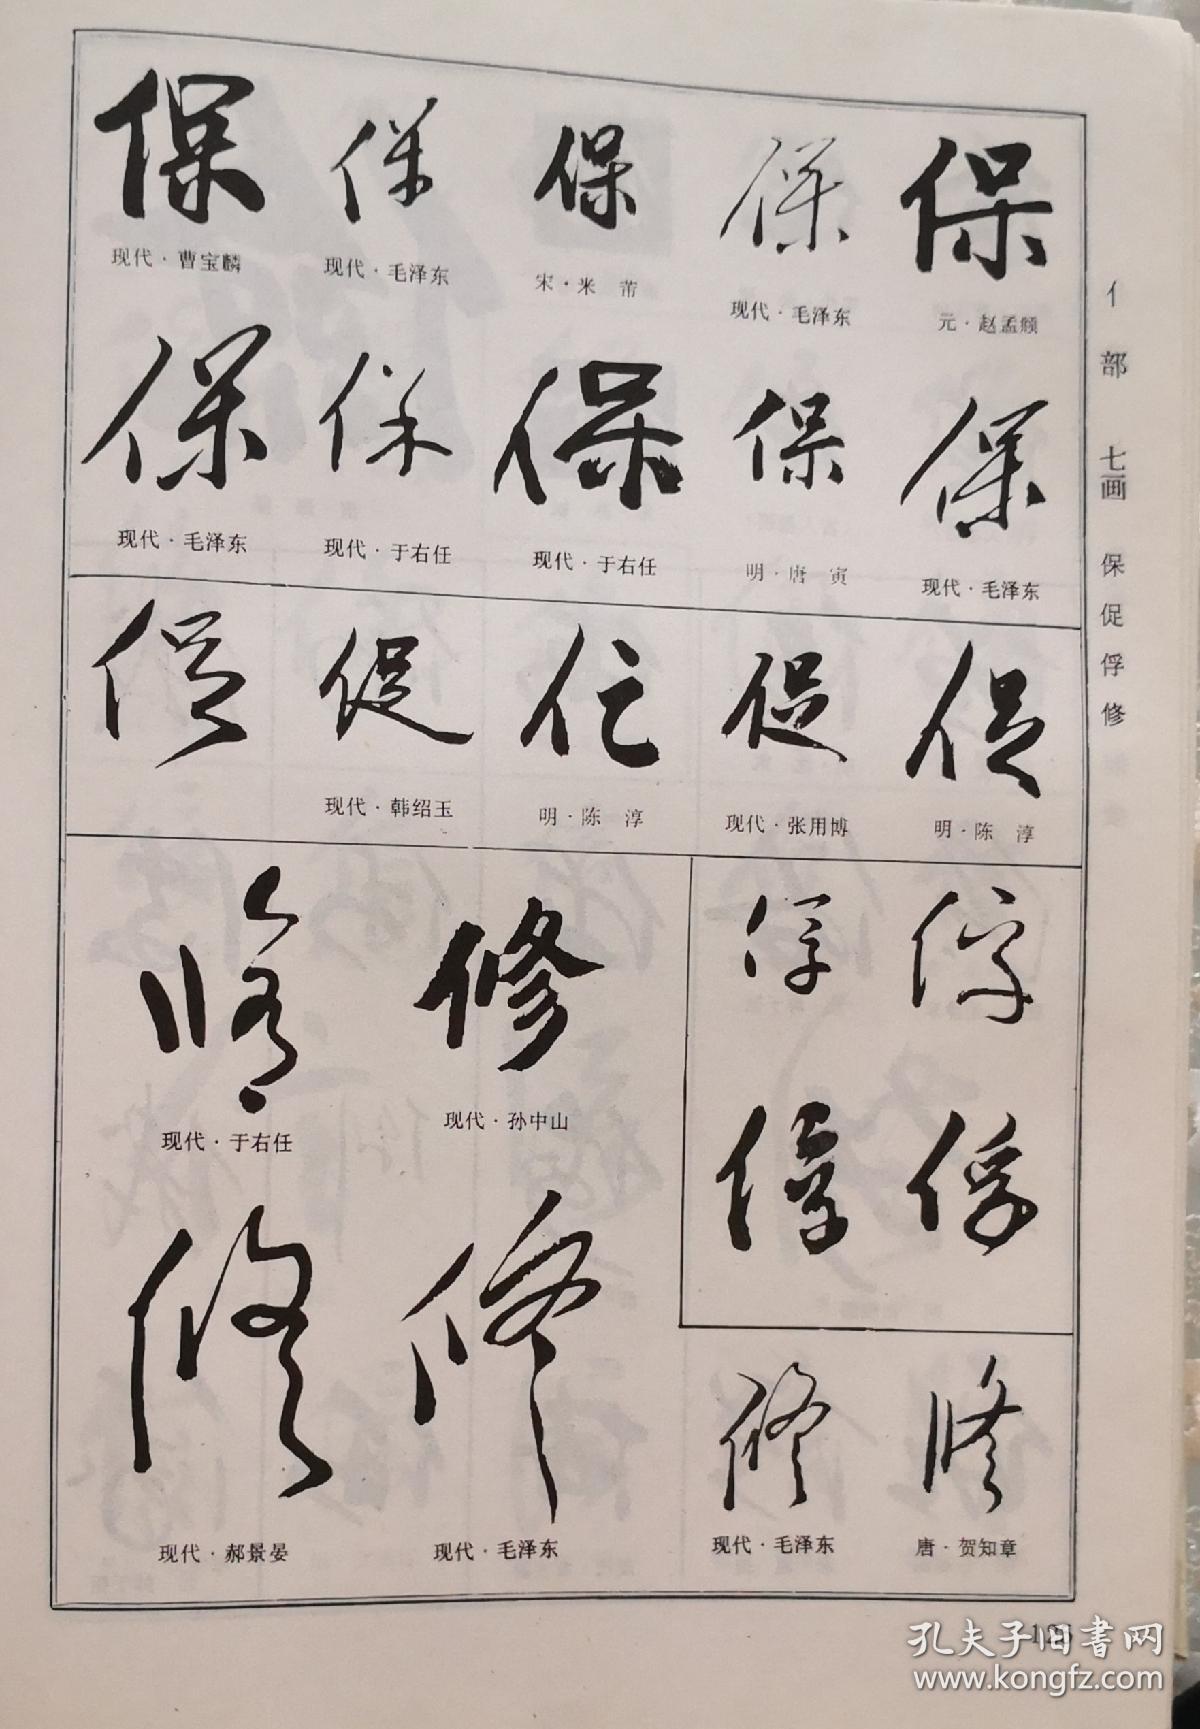 保 保 保 保 保
现代·曹宝麟 现代·毛泽东 宋·米 芾 现代·毛泽东 元·赵孟頫
保 保 保 保 保
现代·毛泽东 现代·于右任 现代·于右任 明·唐 寅 现代·毛泽东
促 促 促 促 促
现代·韩绍玉 明·陈 淳 现代·张用博 明·陈 淳
修 修
现代·于右任 现代·孙中山
俘 俘
俘 俘
修 修 修 修
现代·郝景晏 现代·毛泽东 现代·毛泽东 唐·贺知章
亻部 七画 保促俘修
孔夫子旧书网
www.kongfz.com